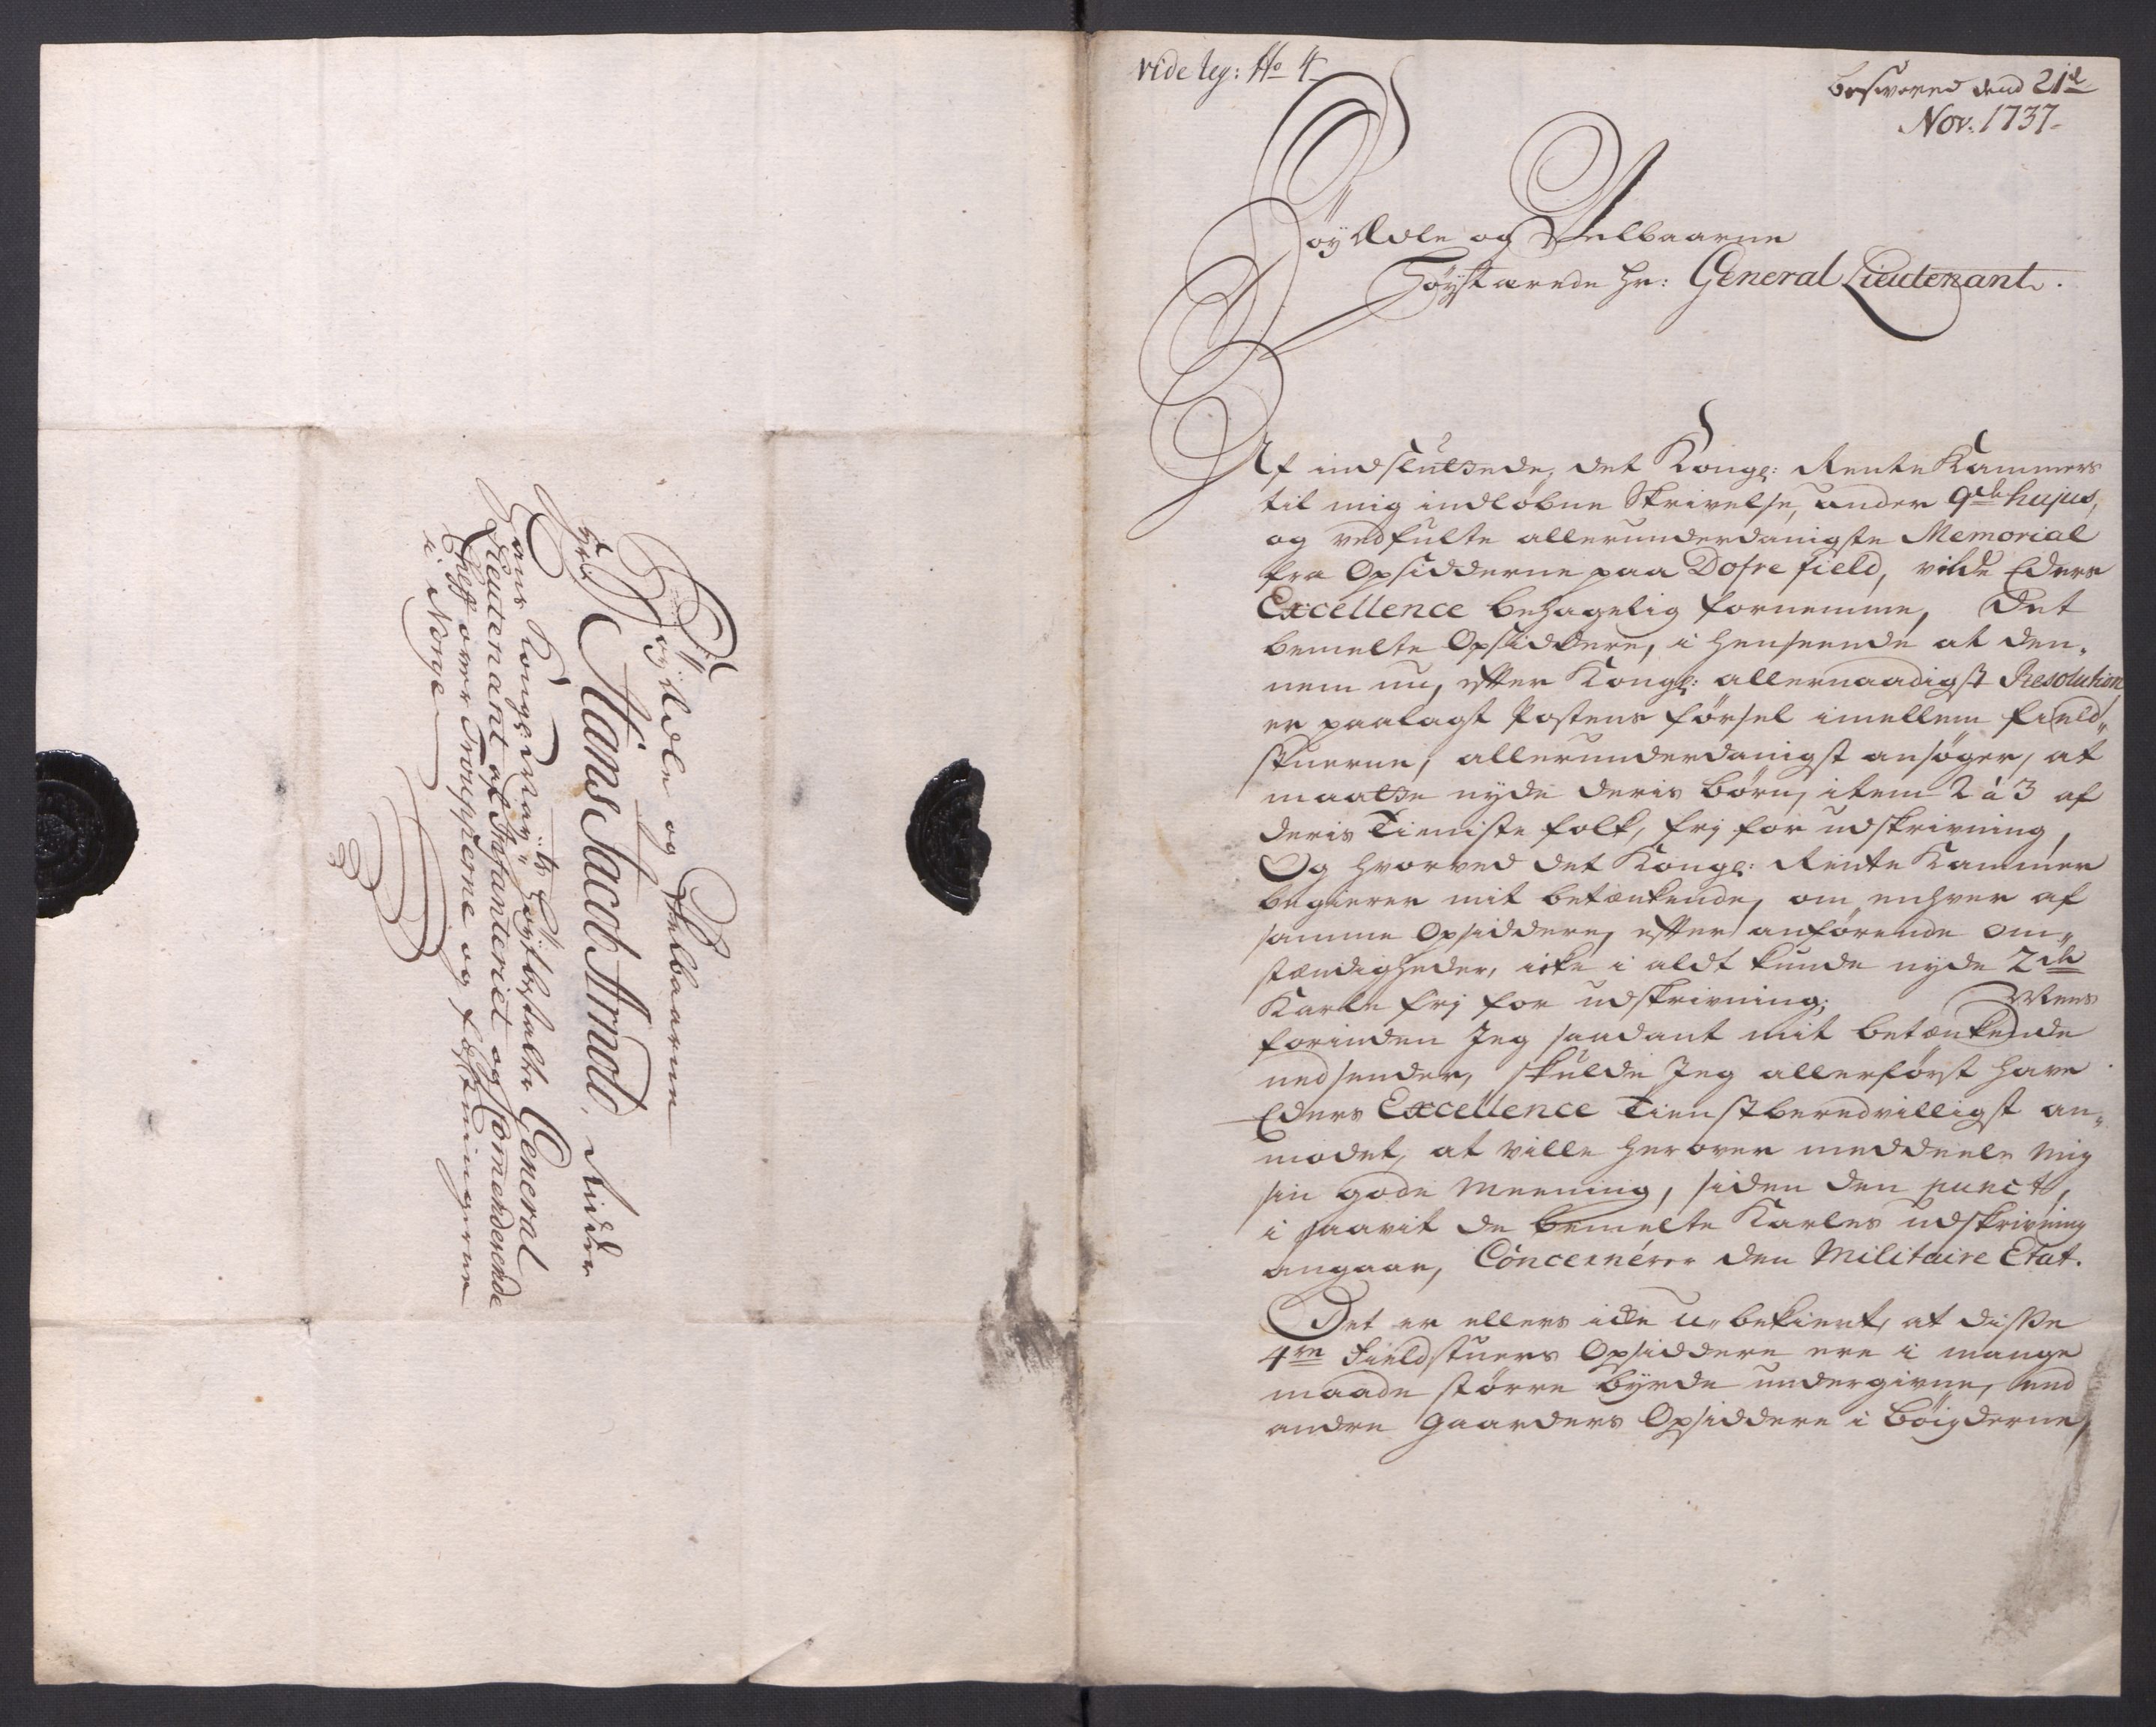 Til
Høy Ædle og Velbaarne
Hr: Hans Jacob Arnold, Ridder
Hans Kongl: May:ts Høytbestalte General
Lieutenant af Infanteriet og Commenderende
Cheff over Troupperne og Fæstningerne
i Norge
vide leg: No 4
besvared dend 21d
Nov: 1737.
Høy Ædle og Velbaarne
Høystærede Hr: General Lieutenant.
Af indsluttede, det Kongl: Rente Kammers
til mig indløbne Skrivelse, under 9de hujus,
og vedfulte allerunderdanigste Memorial
fra Opsidderne paa Dofre field, vilde Eders
Excellence behagelig fornemme, Det
bemelte Opsiddere, i henseende at den„
nem nu, efter Kongl: allernaadigst Resolution
er paalagt Postens førsel imellem field„
stuerne, allerunderdanigst ansøger, at
maatte nyde deris børn, item 2 à 3 af
deris Tieniste folk, frj for udskrivning,
Og hvorved det Kongl: Rente Kammer
begierer mit betænkende, om enhver af
samme Opsiddere, efter anførende om„
stændigheder, icke i aldt kunde nyde 2de
Karle frj for udskrivning; Mens
forinden Jeg saadant mit betænkende
nedsender, skulde Jeg allerførst have
Eders Excellence Tienstberedvilligst an„
modet, at ville herover meddeele mig
sin gode Meening, siden den punct,
i saavit de bemelte Karles udskrivning
angaar, Concernérer den Militaire Etat.
Det er ellers icke u„bekient, at disse
4re Fieldstuers Opsiddere ere i mange
maade større byrde undergivne, end
andre Gaarders Opsiddere i bøigderne,